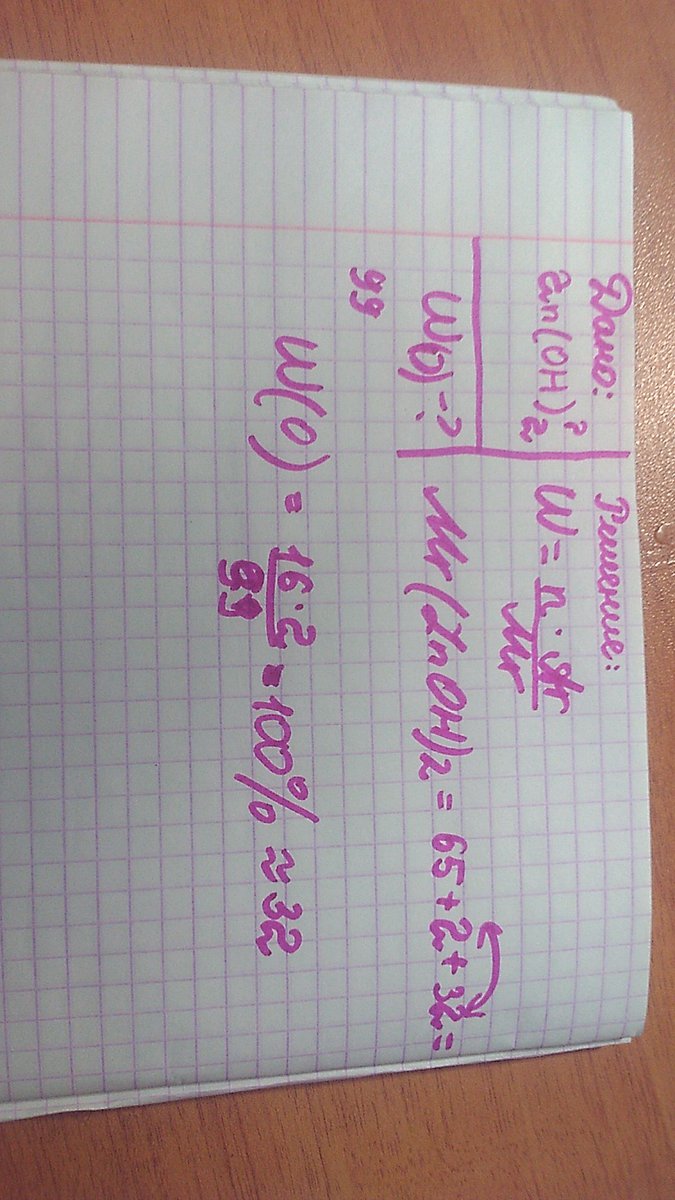 Дано:
Zn(OH)₂²
W(O) - ?
Решение:
W = n · Ar / Mr
Mr(ZnOH)₂ = 65 + 2 + 32 =
99
W(O) = 16 · 2 / 99 = 100% ≈ 32